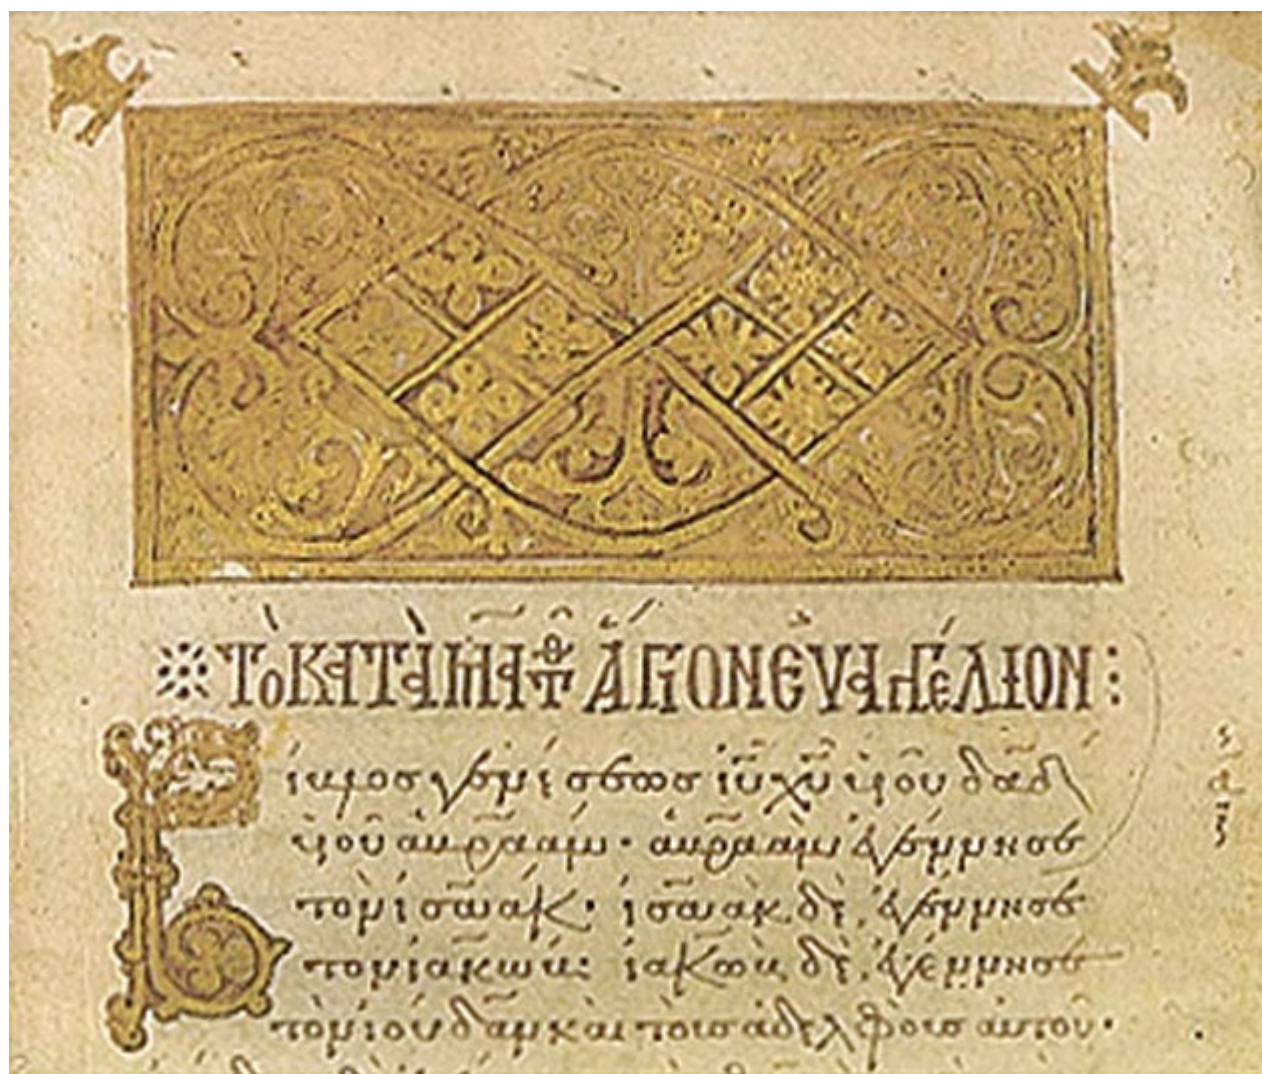 Τὸ ΚΑΤᾺ ΜΑ̃ΤΘ ἍΓΙΟΝ ΕΥ̓ΑΓΓΈΛΙΟΝ:
Βίβλος γενέσεως ἰῡ χῡ υἱοῦ δᾱδ
υἱοῦ ἀβραάμ· ἀβραὰμ ἐγέννησε
τὸν ἰσαάκ· ἰσαὰκ δὲ, ἐγέννησε
τὸν ἰακώβ: ἰακὼβ δὲ, ἐγέννησε
τὸν ἰούδαν καὶ τοὺς ἀδελφοὺς αὐτοῦ·